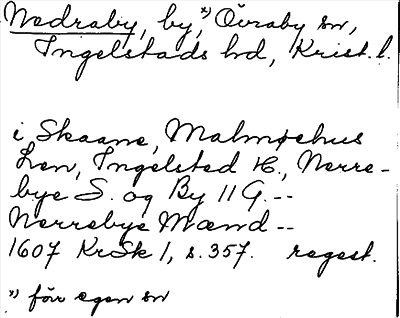 Nedraby, by, *) Övraby sn,
Ingelstads hd, Krist. l.
i Skaane, Malmøehus
Len, Ingelsted H., Nørre-
bye S. og By 11 G. --
Nørrebye Mænd --
1607 KrSk 1, s. 357. regest.
*) förr egen sn